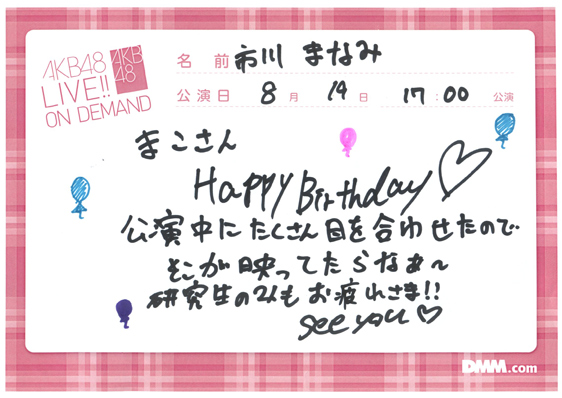 AKB48
LIVE!!
ON DEMAND
AKB
48
名前 市川 まなみ
公演日 8月 14日 17:00 公演
まこさん
Happy Birthday♡
公演中にたくさん目を合わせたので
そこが映ってたらなぁ〜
研究生のみもお疲れさま!!
see you♡
DMM.com